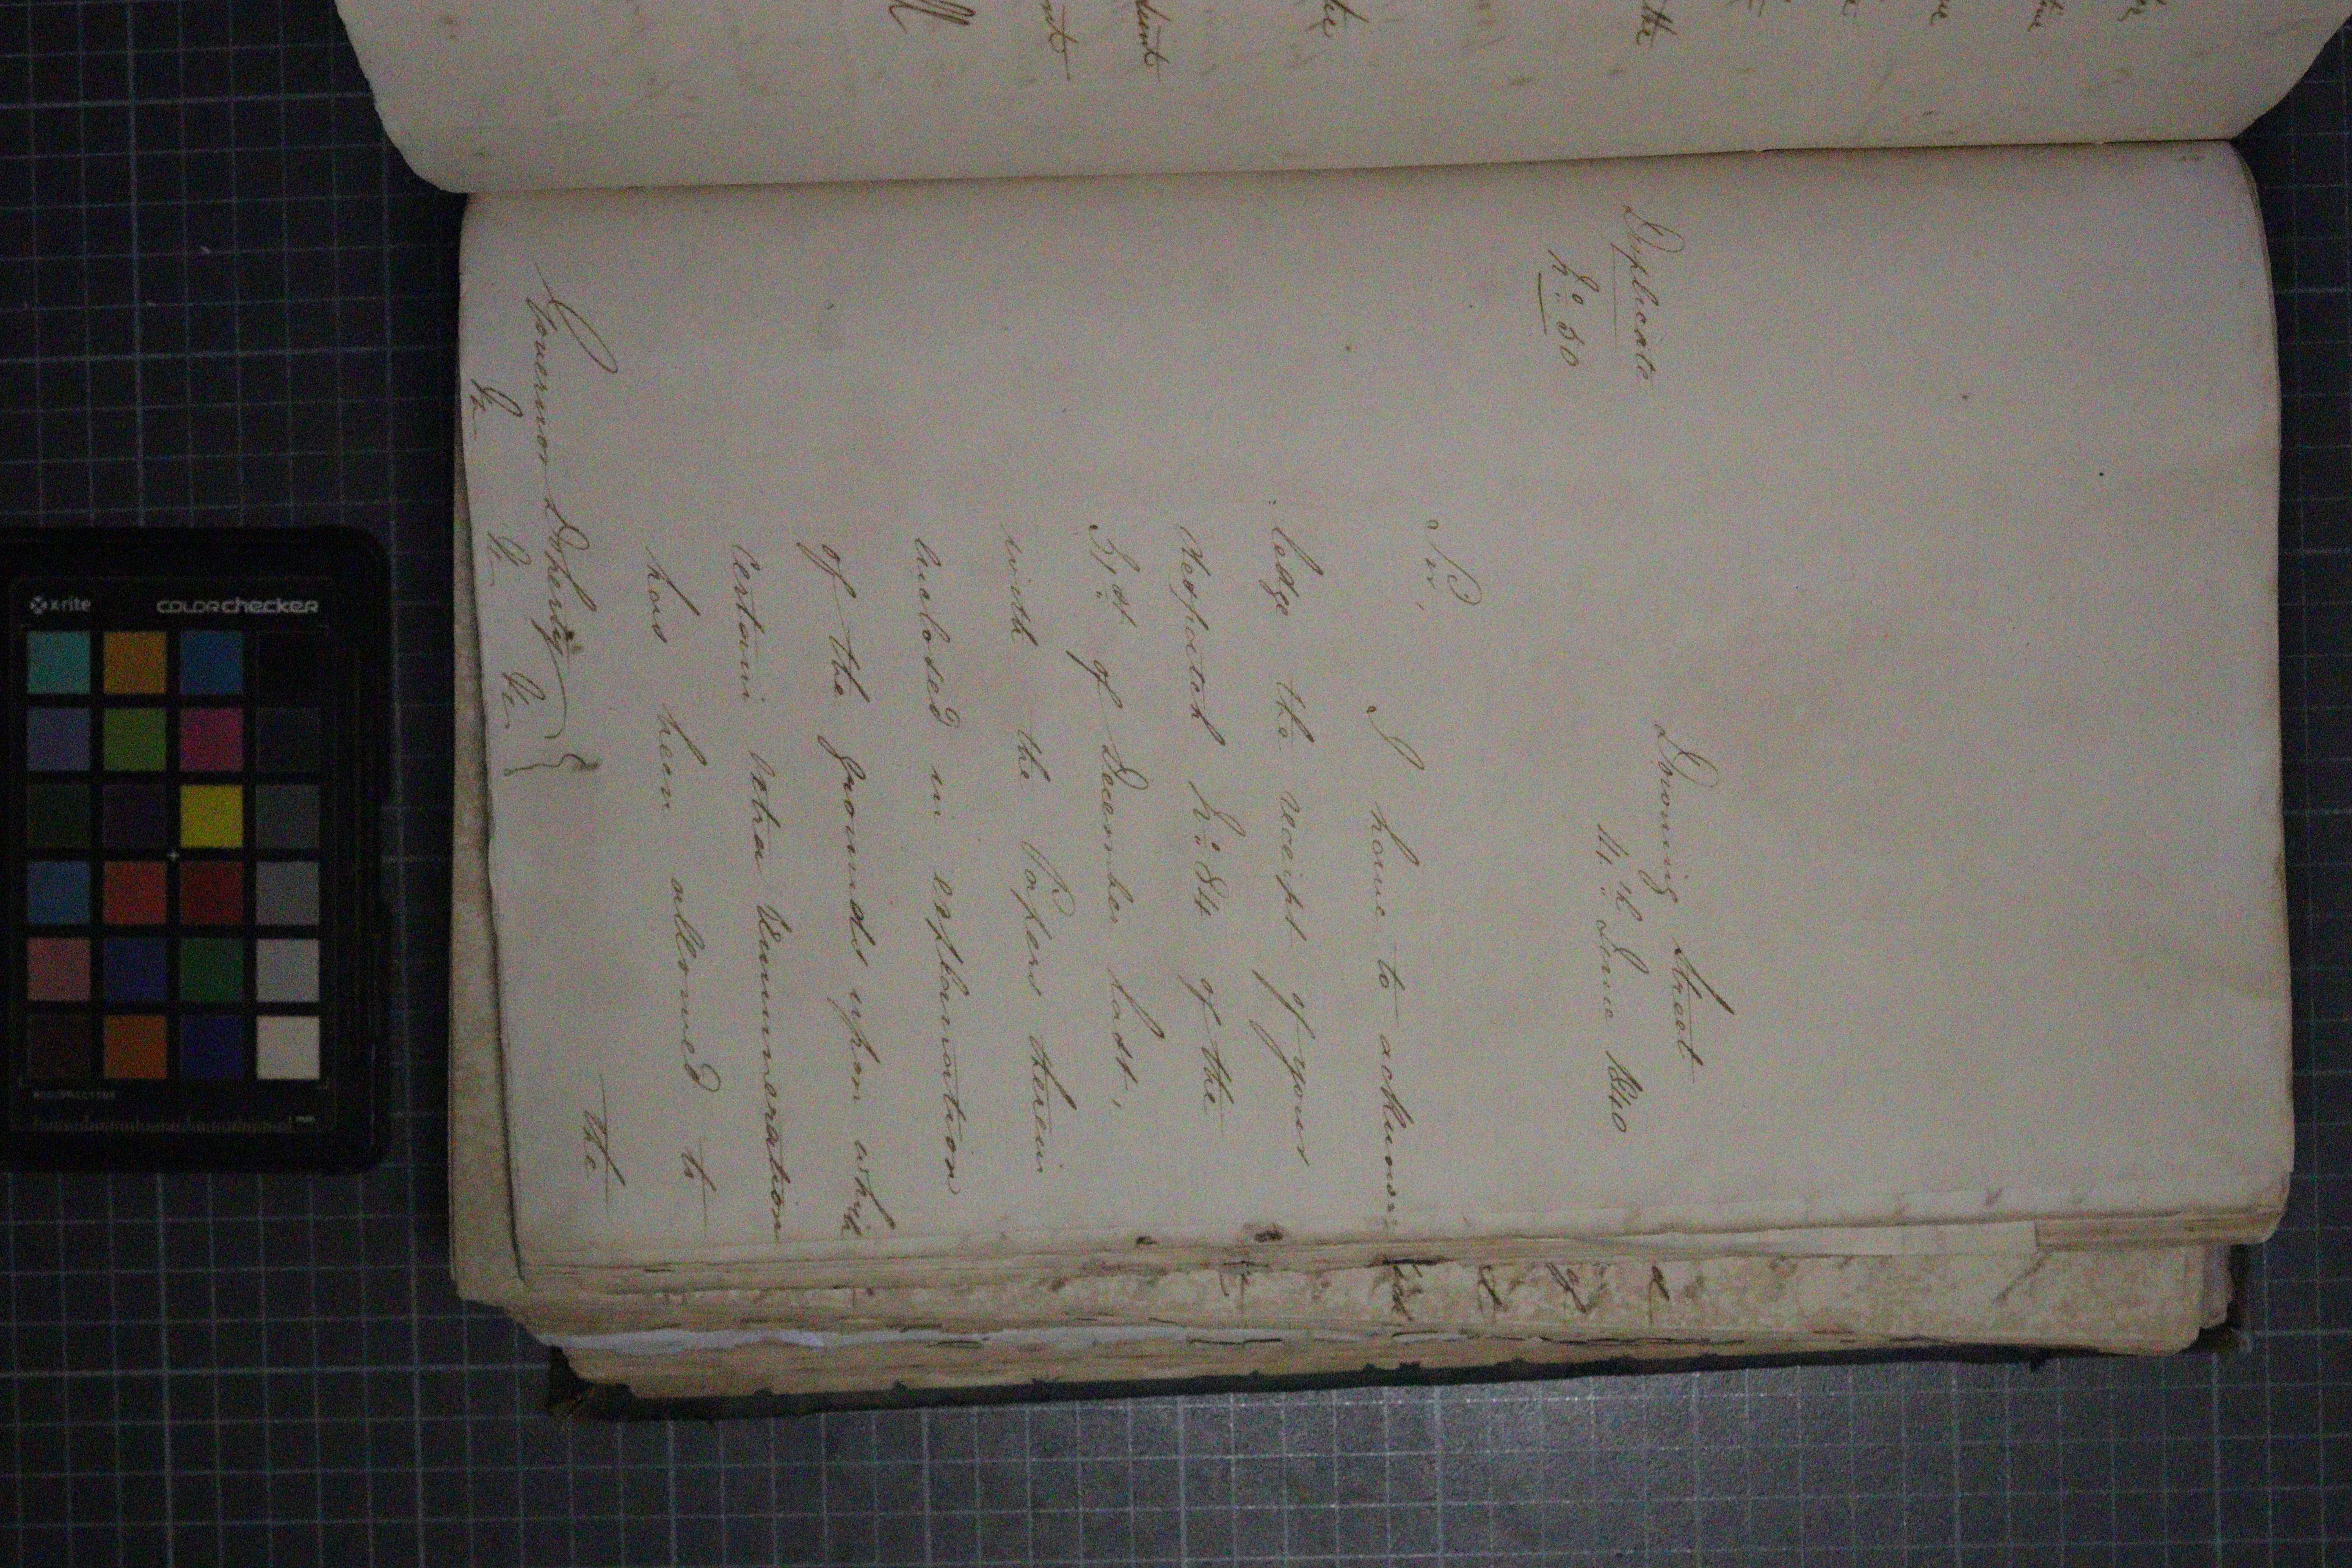 Duplicate
No. 50
Downing Street
4th June 1840
Sir,
I have to acknow-
ledge the receipt of your
Despatch No. 84 of the
31st of December last,
with the Papers therein
inclosed in explanation
of the grounds upon which
certain extra Remuneration
has been allowed to
the
Governor Doherty
&c &c &c
the
x-rite
colorchecker